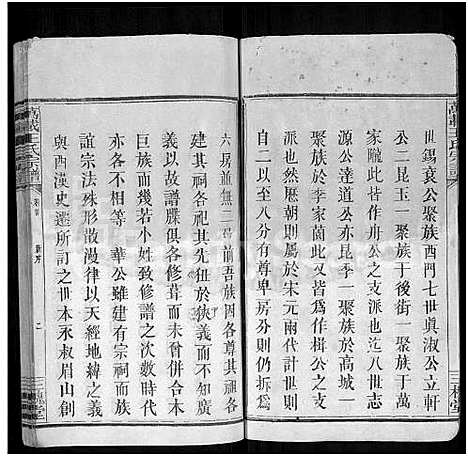 世錫袞公聚族西門七世眞淑公立軒
公二昆玉一聚族于後街一聚族于萬
家隴此皆作舟公之支嗣也八世志
公達道公丞彥季一聚族於高城一
聚族於李家菌此又皆作楫公之支
也然厯朝則屬於宋元兩代計世則
自二以至八分有尊卑房分則仍折爲
六房並無二司前吾族因各尊其祖各
建其祠各祀其先近於狹義而不知廣
義也故譜牒俱各修葺而未曾併合與
巨族而比幾若小姓致修譜之次數時代
亦各不相等 華公雖建有宗祠而族
誼宗法殊形散漫律以天經地緯之義
與西漢史遷所訂之世本永叔眉山創
萬載王氏宗譜
新序
三槐堂